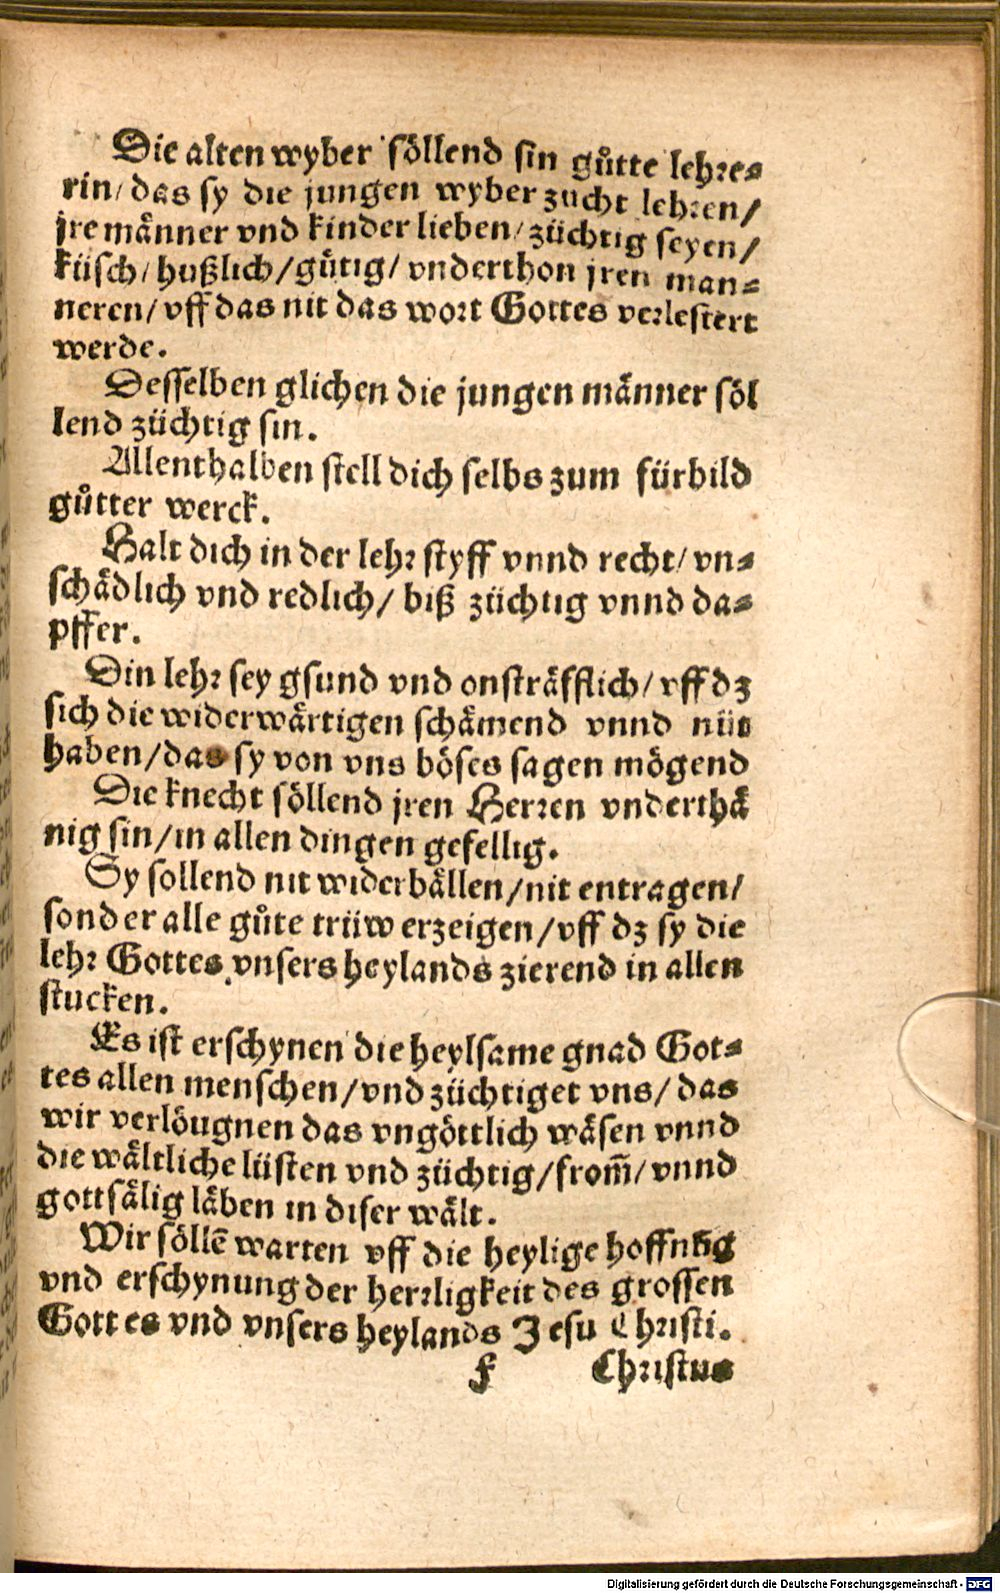 Die alten wyber söllend sin gůtte lehre-
rin/ das sy die jungen wyber zucht lehren/
jre männer vnd kinder lieben/ züchtig seyen/
küsch/ hußlich/ gütig/ vnderthon jren man-
neren/ vff das nit das wort Gottes verlestert
werde.
Desselben glichen die jungen männer söl
lend züchtig sin.
Allenthalben stell dich selbs zum fürbild
gůtter werck.
Halt dich in der lehr styff vnnd recht/ vn-
schädlich vnd redlich/ biß züchtig vnnd da-
pffer.
Din lehr sey gsund vnd onsträfflich/ vff dz
sich die widerwärtigen schämend vnnd nüt
haben/ das sy von vns böses sagen mögend
Die knecht söllend jren Herren vnderthä
nig sin/ in allen dingen gefellig.
Sy sollend nit widerbällen/ nit entragen/
sonder alle gůte trüw erzeigen/ vff dz sy die
lehr Gottes vnsers heylands zierend in allen
stucken.
Es ist erschynen die heylsame gnad Got-
tes allen menschen/ vnd züchtiget vns/ das
wir verlöugnen das vngöttlich wäsen vnnd
die wältliche lüsten vnd züchtig/ from̃/ vnnd
gottsälig läben in diser wält.
Wir söllē warten vff die heylige hoffnūg
vnd erschynung der herrligkeit des grossen
Gottes vnd vnsers heylands Jesu Christi.
f Christus
Digitalisierung gefördert durch die Deutsche Forschungsgemeinschaft - DFG